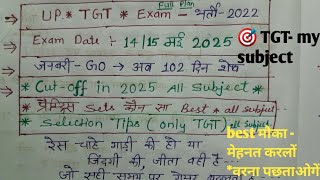 Full Plan
UP.* TGT * Exam - भर्ती-2022
Exam Date: 14/15 मई 2025
🎯 TGT- my subject
जनवरी - GO → अब 102 दिन शेष
* Cut-off in 2025 All Subject *
* प्रैक्टिस Sets कौन सा Best * all subject
* Selection Tips (only TGT) all Subject
best मौका -
मेहनत करलों
*वरना पछताओगें
रेस चाहे गाड़ी की हो या
जिंदगी की, जीता वही है
जो सही समय पर